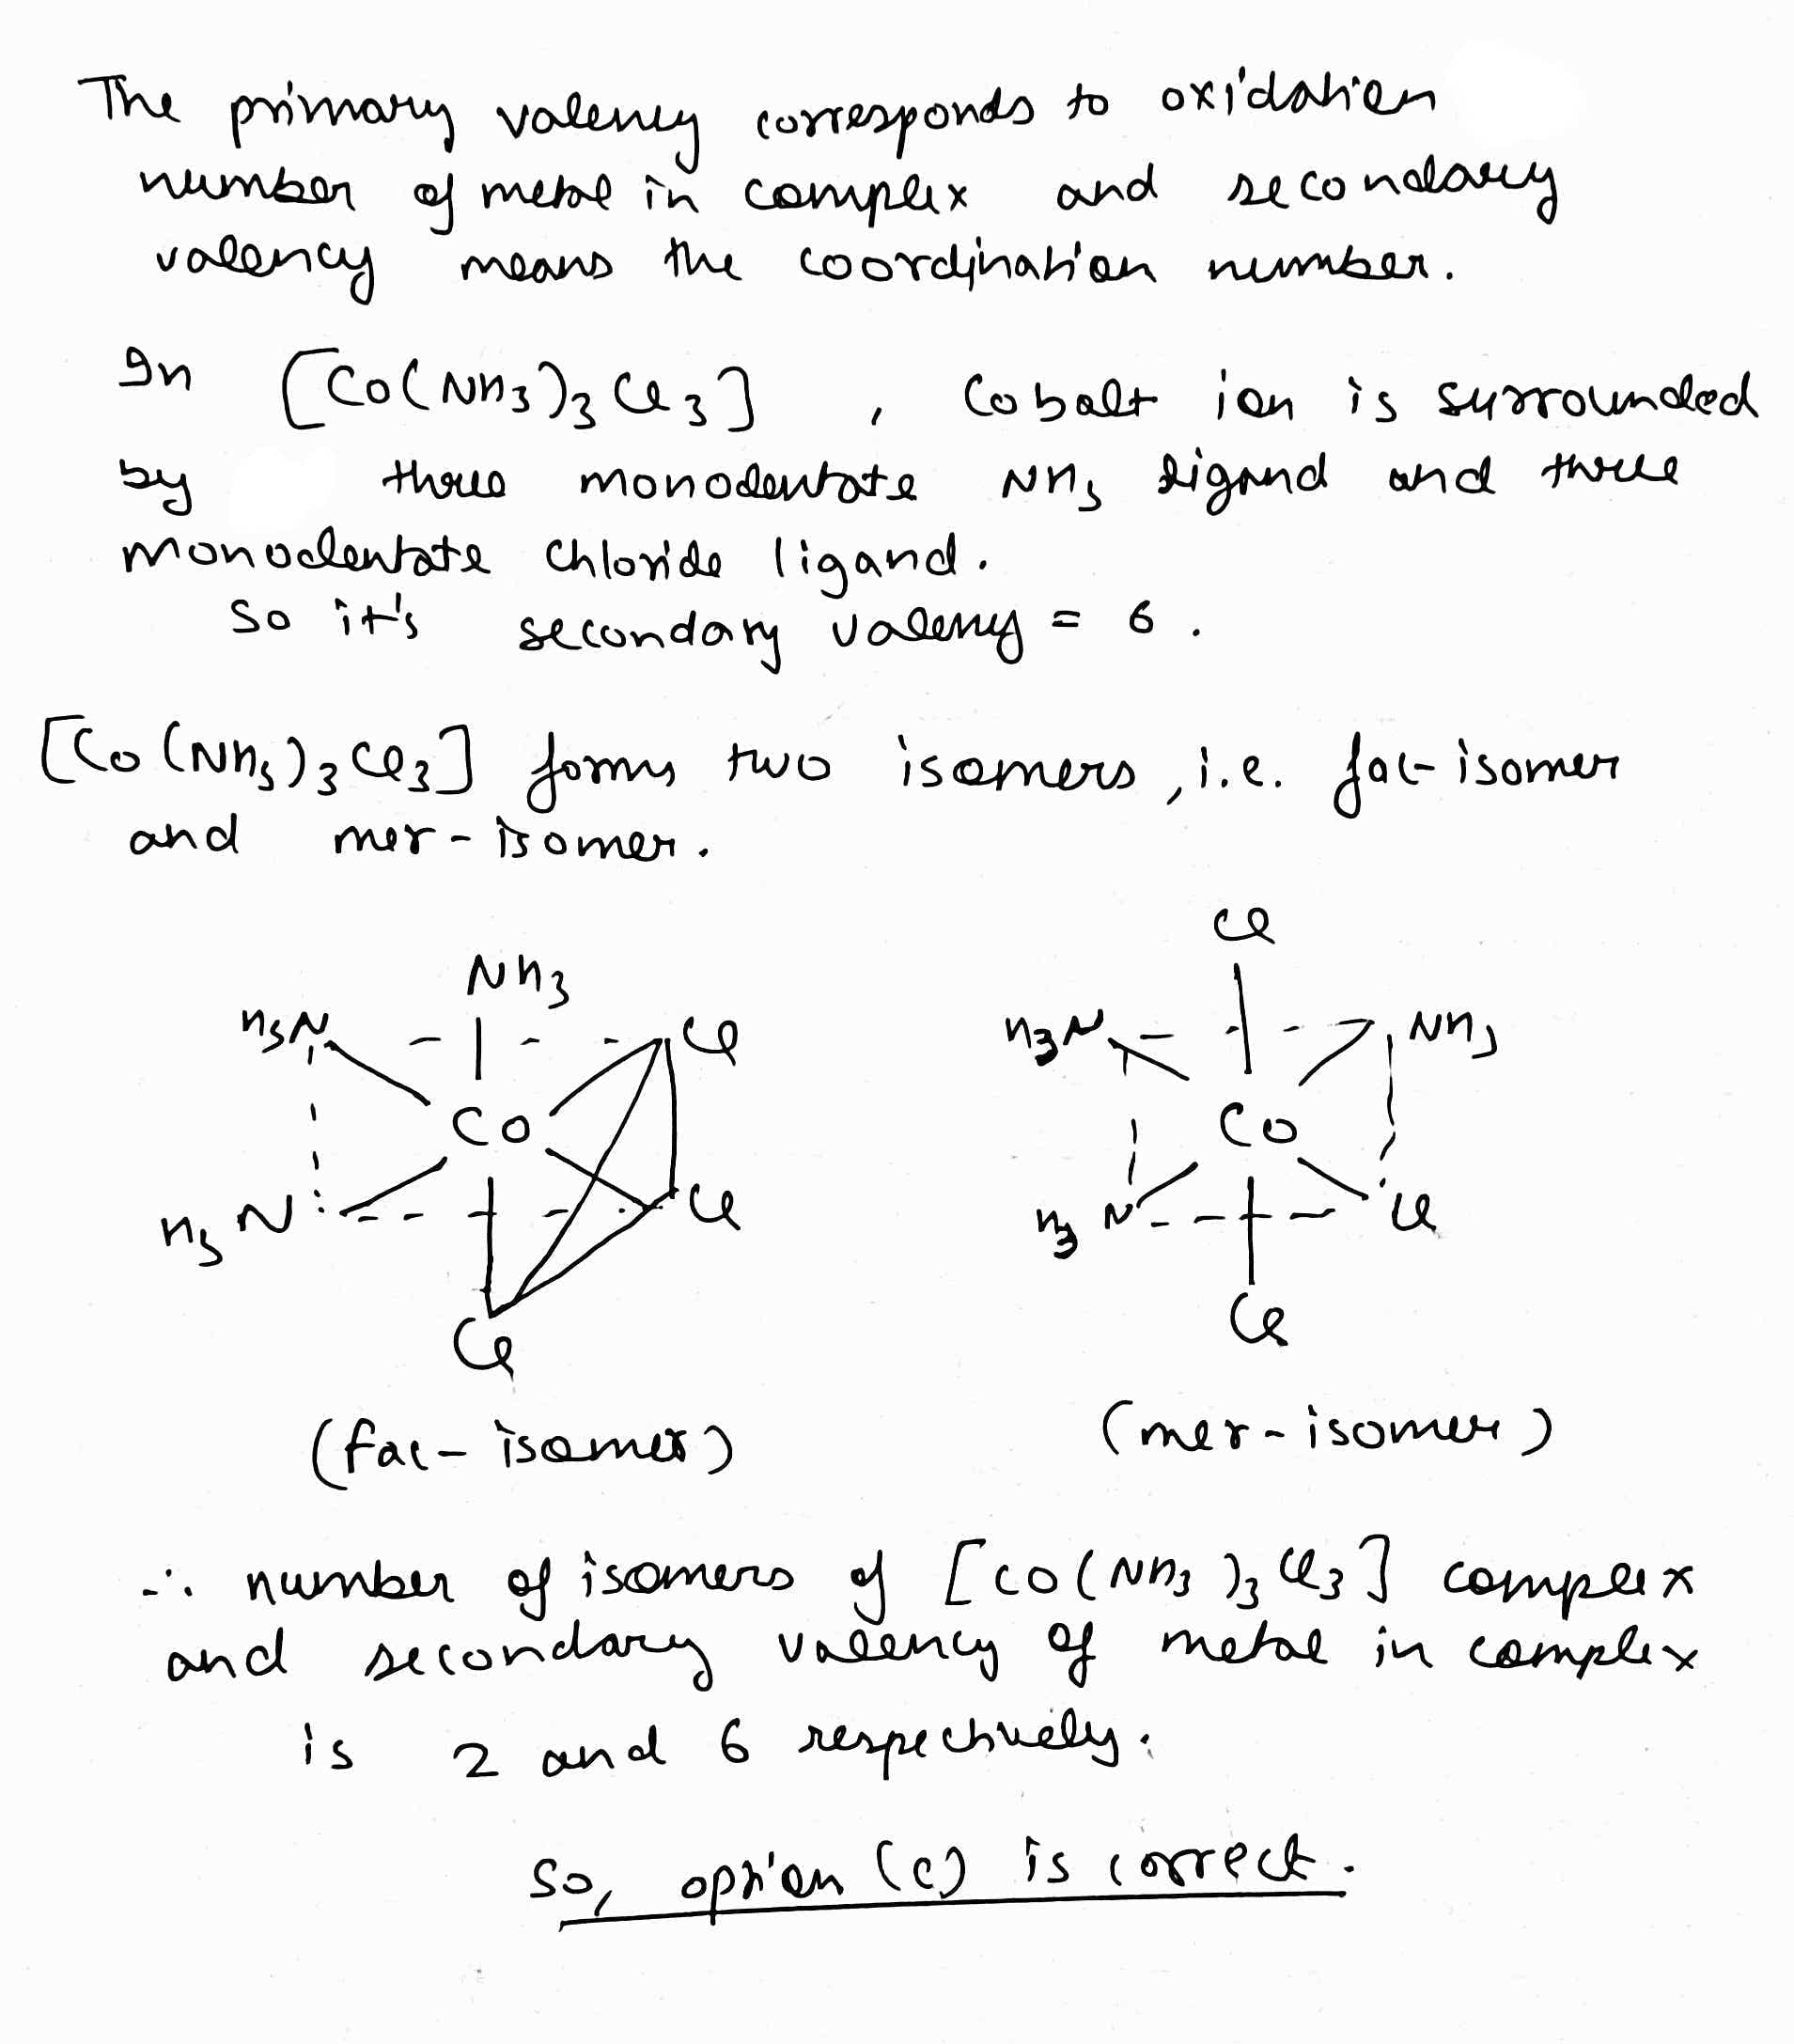 The primary valency corresponds to oxidation
number of metal in complex and secondary
valency means the coordination number.
In [Co(NH3)3Cl3] , Cobalt ion is surrounded
by three monodentate NH3 ligand and three
monodentate chloride ligand.
so it's secondary valency = 6 .
[Co(NH3)3Cl3] forms two isomers, i.e. fac-isomer
and mer-isomer.
NH3
H3N Cl
Co
H3N Cl
Cl
(fac-isomer)
Cl
H3N NH3
Co
H3N Cl
Cl
(mer-isomer)
∴ number of isomers of [Co(NH3)3Cl3] complex
and secondary valency of metal in complex
is 2 and 6 respectively.
So, option (c) is correct.